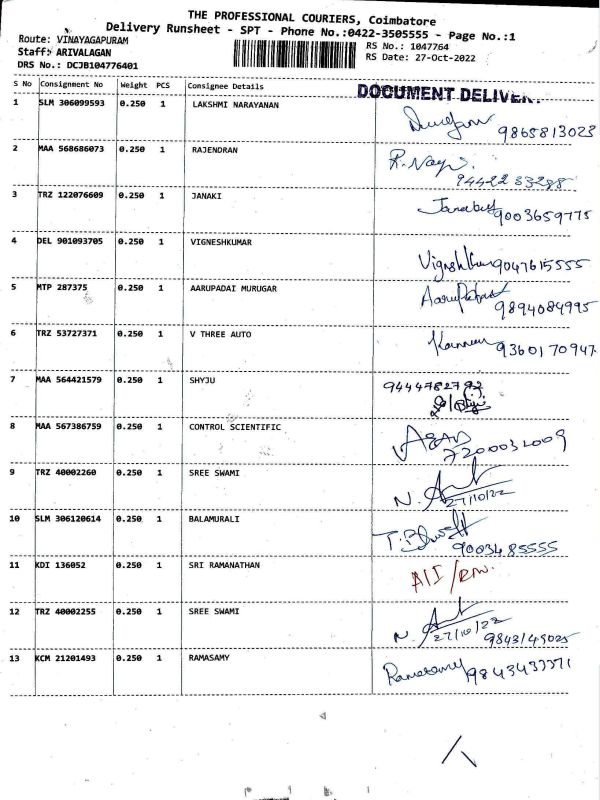 THE PROFESSIONAL COURIERS, Coimbatore
Delivery Runsheet - SPT - Phone No.:0422-3505555 - Page No.:1
Route: VINAYAGAPURAM
RS No.: 1047764
Staff: ARIVALAGAN
RS Date: 27-Oct-2022
DRS No.: DCJB104776401
S No Consignment No Weight PCS Consignee Details
DOCUMENT DELIVER
1 SLM 306099593 0.250 1 LAKSHMI NARAYANAN
9865813023
2 MAA 568686073 0.250 1 RAJENDRAN
94422 33288
3 TRZ 122076609 0.250 1 JANAKI
9003659775
4 DEL 901093705 0.250 1 VIGNESHKUMAR
9047615555
5 MTP 287375 0.250 1 AARUPADAI MURUGAR
9894084995
6 TRZ 53727371 0.250 1 V THREE AUTO
9360170947
7 MAA 564421579 0.250 1 SHYJU
8 MAA 567386759 0.250 1 CONTROL SCIENTIFIC
9 TRZ 40002260 0.250 1 SREE SWAMI
27/10/22
10 SLM 306120614 0.250 1 BALAMURALI
9003485555
11 KDI 136052 0.250 1 SRI RAMANATHAN
12 TRZ 40002255 0.250 1 SREE SWAMI
27/10/22
13 KCM 21201493 0.250 1 RAMASAMY
Ramasamy